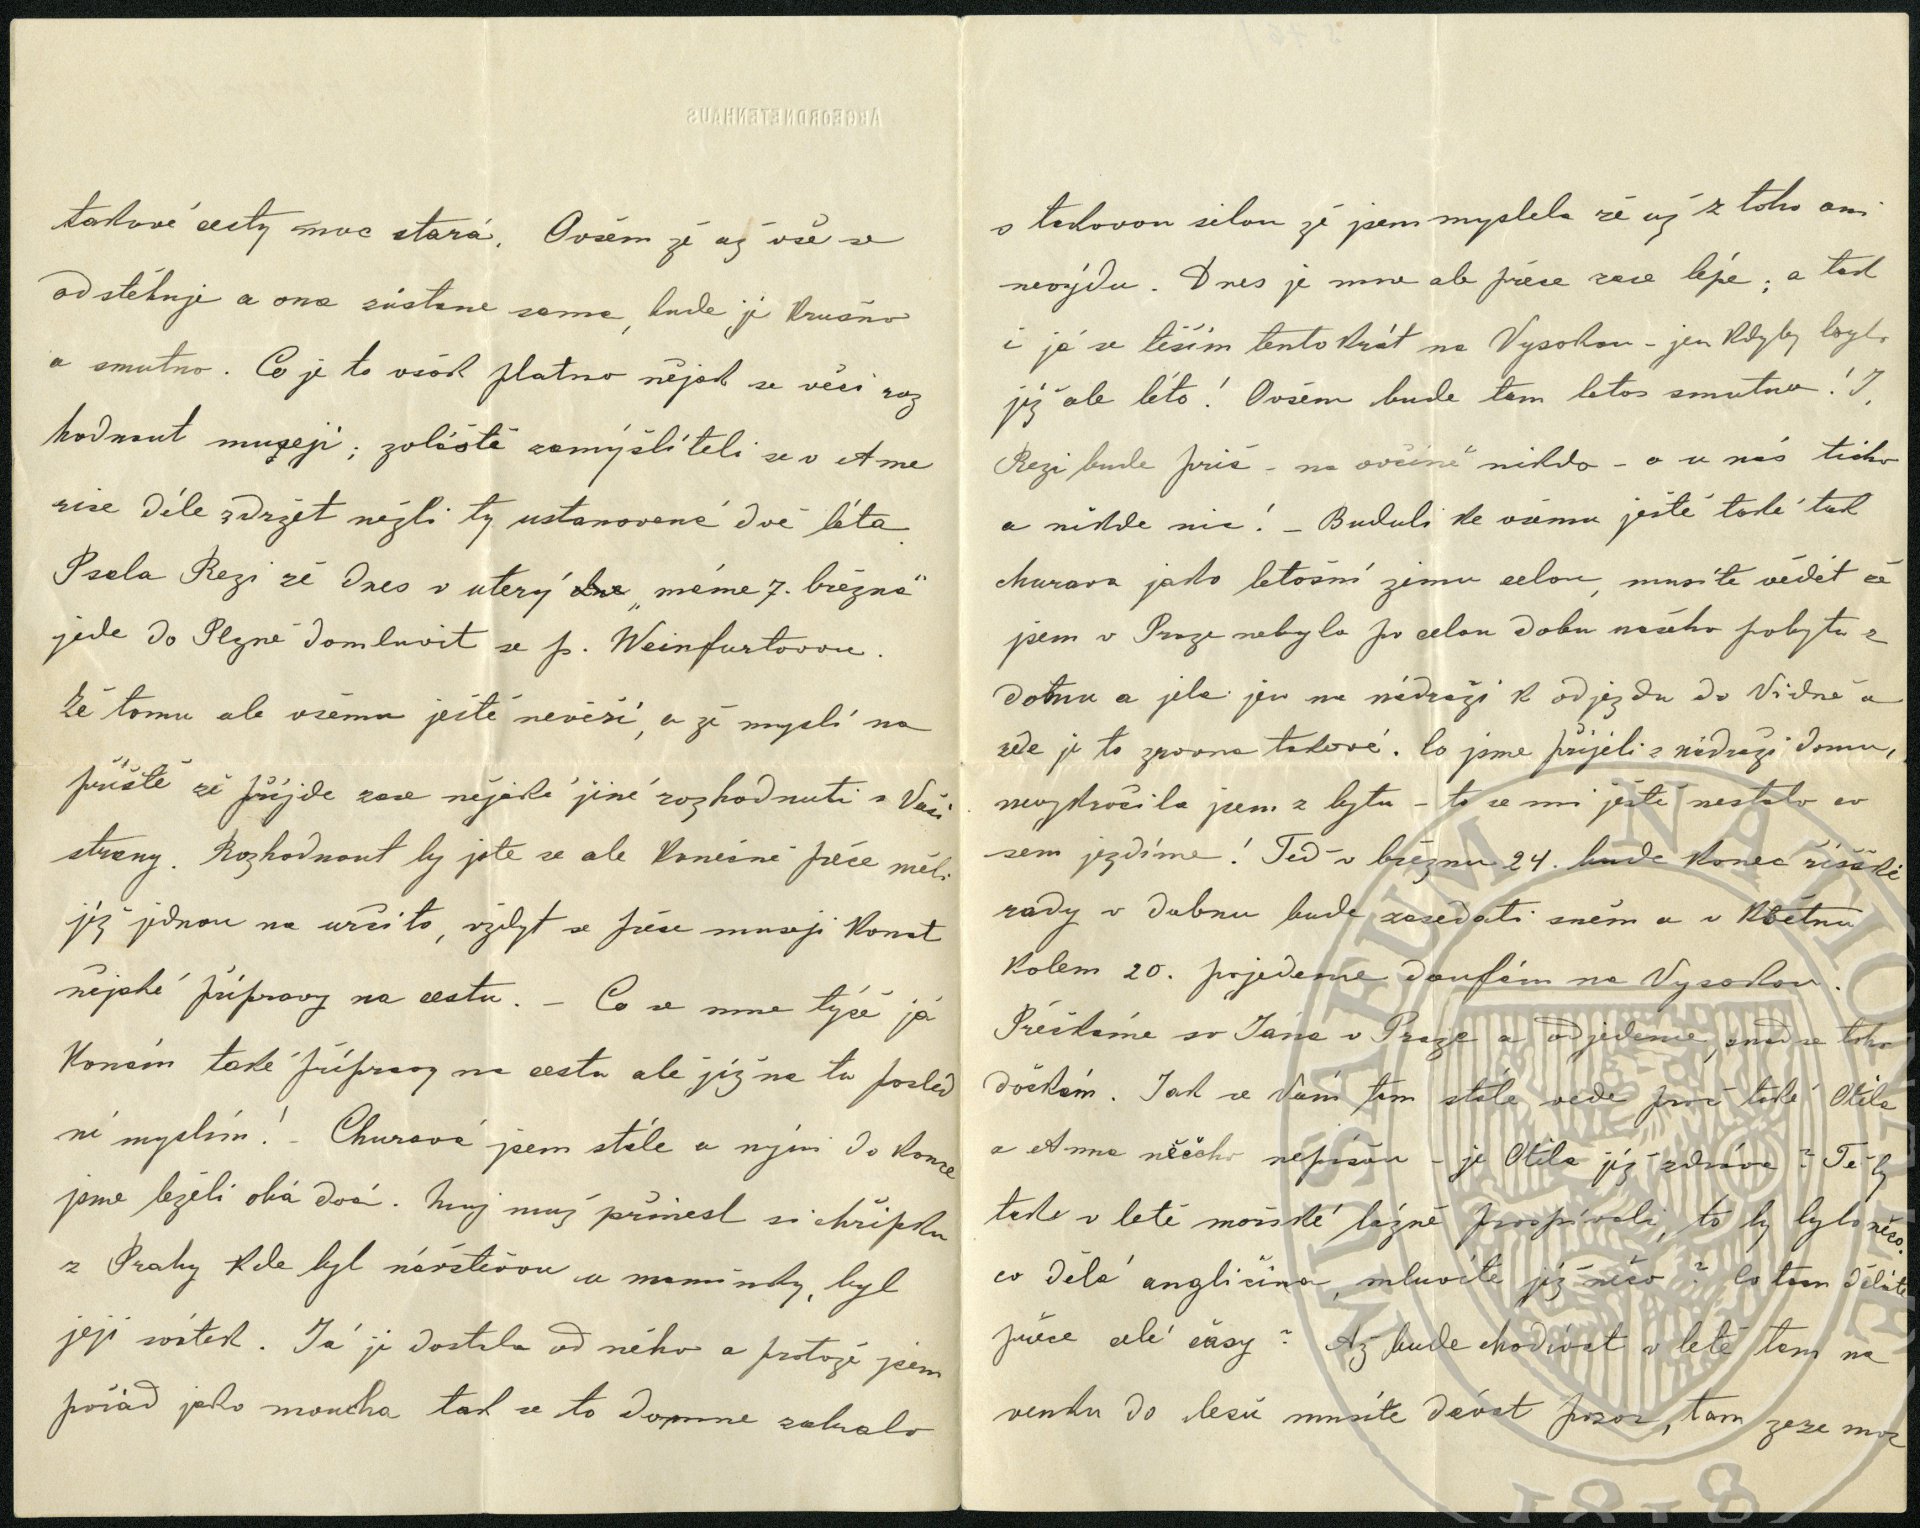 ABGEORDNETENHAUS
takové cesty moc stará. Ovšem že až vše se
odstěhuje a ona zůstane sama, bude jí krušno
a smutno. Co je to však platno nějak se věci roz
hodnout musejí; zvláště zamýšlíteli se v Ame
rice déle zdržet nežli ty ustanovené dvě léta.
Psala Rezi že dnes v uterý „máme 7. března"
jede do Plzně domluvit se p. Weinfurtovou.
Že tomu ale všemu ještě nevěří, a že myslí na
příště že přijde zase nějaké jiné rozhodnutí s Vaší
strany. Rozhodnout by jste se ale konečně přece měli
již jednou na určito, vždyt se přece museji konat
nějaké přípravy na cestu. – Co se mne týče já
konám také přípravy na cestu ale již na tu posled
ní myslím! – Churavá jsem stále a nyní do konce
jsme leželi oba dva. Muj muž přinesl si chřipku
z Prahy kde byl návštěvou u maminky, byl
její svátek. Já ji dostala od něho a protože jsem
pořád jako moucha tak se to do mne zabralo
s takovou silou že jsem myslela že už z toho ani
nevyjdu. Dnes je mne ale přece zase lépe; a tak
i já se těším tentokrát na Vysokou – jen kdyby bylo
již ale léto! Ovšem bude tam letos smutno! I,
Rezi bude prič – na ovčíně nikdo – a u nás ticho
a nikde nic! – Buduli ke všemu ještě také tak
churava jako letošní zimu celou, musíte vědět že
jsem v Praze nebyla po celou dobu našeho pobytu z
domu a jela jen na nádraží k odjezdu do Vídně a
zde je to zrovna takové. Co jsme přijeli z nádraží domu,
nevykročila jsem z bytu – to se mi ještě nestalo co
sem jezdíme! Teď v březnu 24. bude konec říšské
rady v dubnu bude zasedati sněm a v Květnu
kolem 20. pojedeme doufám na Vysokou.
Přečkáme sv Jána v Praze a odjedeme, snad se toho
dočkám. Jak se Vám tam stále vede proč také Otila
a Anna něčeho nepíšou – je Otila již zdráva? Tě by
také v letě mořské lázně prospívali, to by bylo něco.
co dělá angličina, mluvíte již něco? Co tam děláte
přece celé časy? Až bude chodívat v letě tam na
venku do lesů musíte dávat pozor, tam zeze moc
MUSAEUM NATIONALE
1818